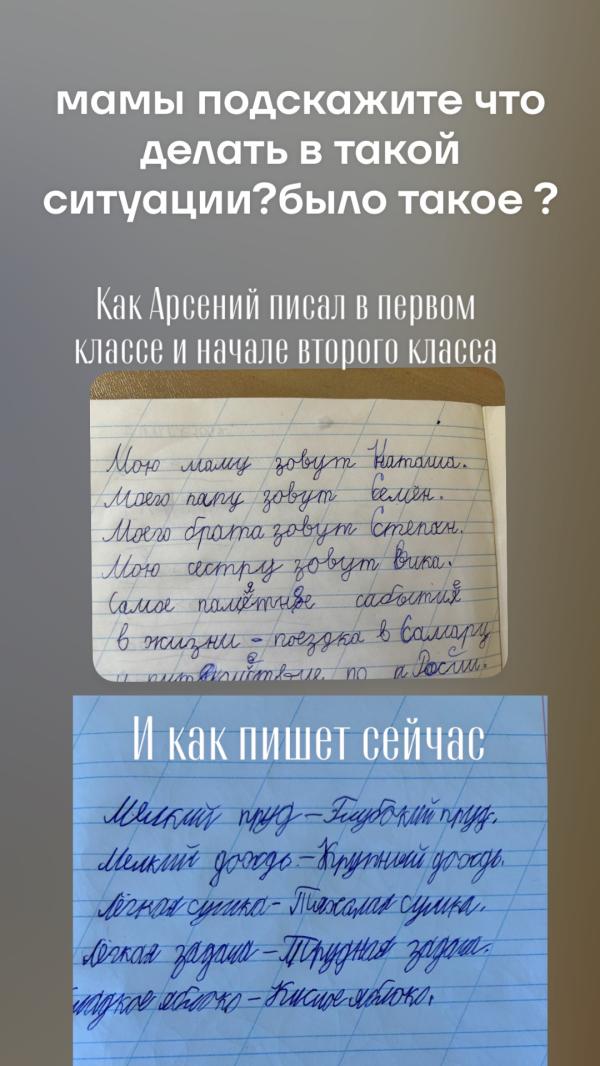 мамы подскажите что
делать в такой
ситуации?было такое ?
Как Арсений писал в первом
классе и начале второго класса
Мою маму зовут Наташа.
Моего папу зовут Семён.
Моего брата зовут Степан.
Мою сестру зовут Вика.
Самое сабытия
в жизни - поездка в Самару
и по Росии.
И как пишет сейчас
Мелкий пруд - Глубокий пруд.
Мелкий дождь - Крупный дождь.
Лёгкая сумка - Тяжолая сумка.
Лёгкая задача - Трудная задача.
Сладкое яблоко - Кислое яблоко.